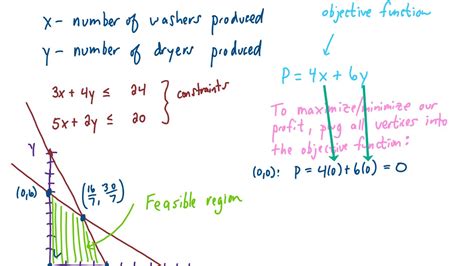 x - number of washers produced
y - number of dryers produced
3x + 4y ≤ 24
5x + 2y ≤ 20
} constraints
Y
(0,6)
(16/7, 30/7)
Feasible region
objective function
P = 4x + 6y
To maximize/minimize our
profit, plug all vertices into
the objective function:
(0,0): P = 4(0) + 6(0) = 0